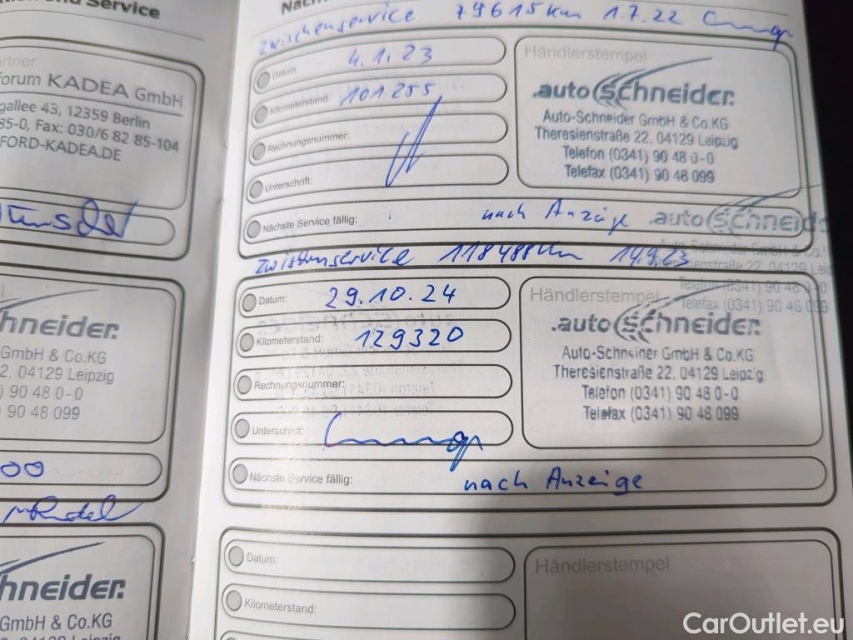 Service
orum KADEA GmbH
gallee 43, 12359 Berlin
85-0, Fax: 030/6 82 85-104
FORD-KADEA.DE
hneider.
GmbH & Co.KG
2, 04129 Leipzig
) 90 48 0-0
90 48 099
00
hneider.
GmbH & Co.KG
04129 Leipzig
Zwischenservice 79615km 1.7.22
Datum: 4.1.23
Kilometerstand: 101255
Rechnungsnummer:
Unterschrift:
Nächste Service fällig: nach Anzeige
Händlerstempel
.autoSchneider.
Auto-Schneider GmbH & Co.KG
Theresienstraße 22, 04129 Leipzig
Telefon (0341) 90 48 0-0
Telefax (0341) 90 48 099
.autoSchneid
Auto-Schneider GmbH & Co.
Theresienstraße 22, 04129 Leip
Telefax (0341) 90 48 099
Zwischenservice 118488km 14.9.23
Datum: 29.10.24
Kilometerstand: 129320
Rechnungsnummer:
Unterschrift:
Nächste Service fällig: nach Anzeige
Händlerstempel
.autoSchneider.
Auto-Schneider GmbH & Co.KG
Theresienstraße 22, 04129 Leipzig
Telefon (0341) 90 48 0-0
Telefax (0341) 90 48 099
Datum:
Kilometerstand:
Händlerstempel
CarOutlet.eu